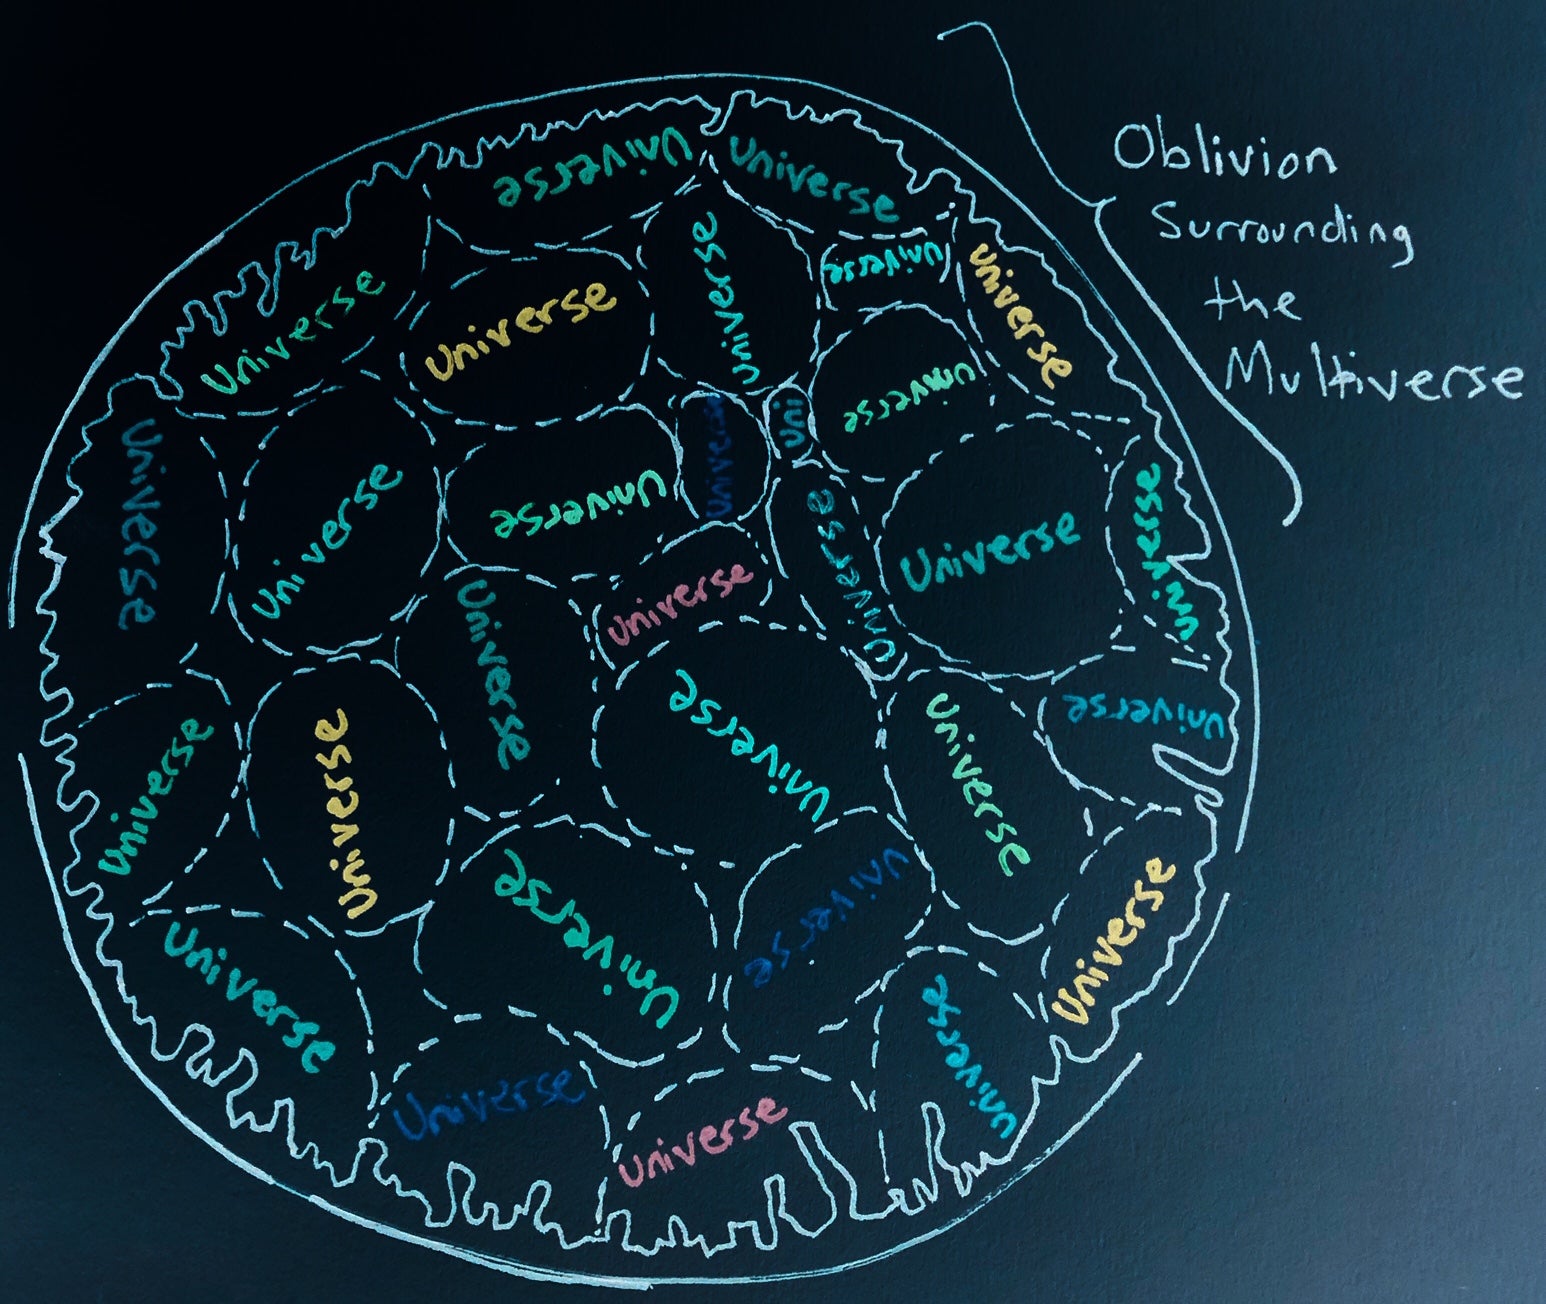 Universe
Universe
Universe
Universe
Universe
Universe
Universe
Universe
Universe
Universe
Uni
Universe
Universe
Universe
Universe
Universe
Universe
Universe
Universe
Universe
Universe
Universe
Universe
Universe
Universe
Universe
Universe
Universe
Universe
Universe
Universe
Oblivion
Surrounding
the
Multiverse